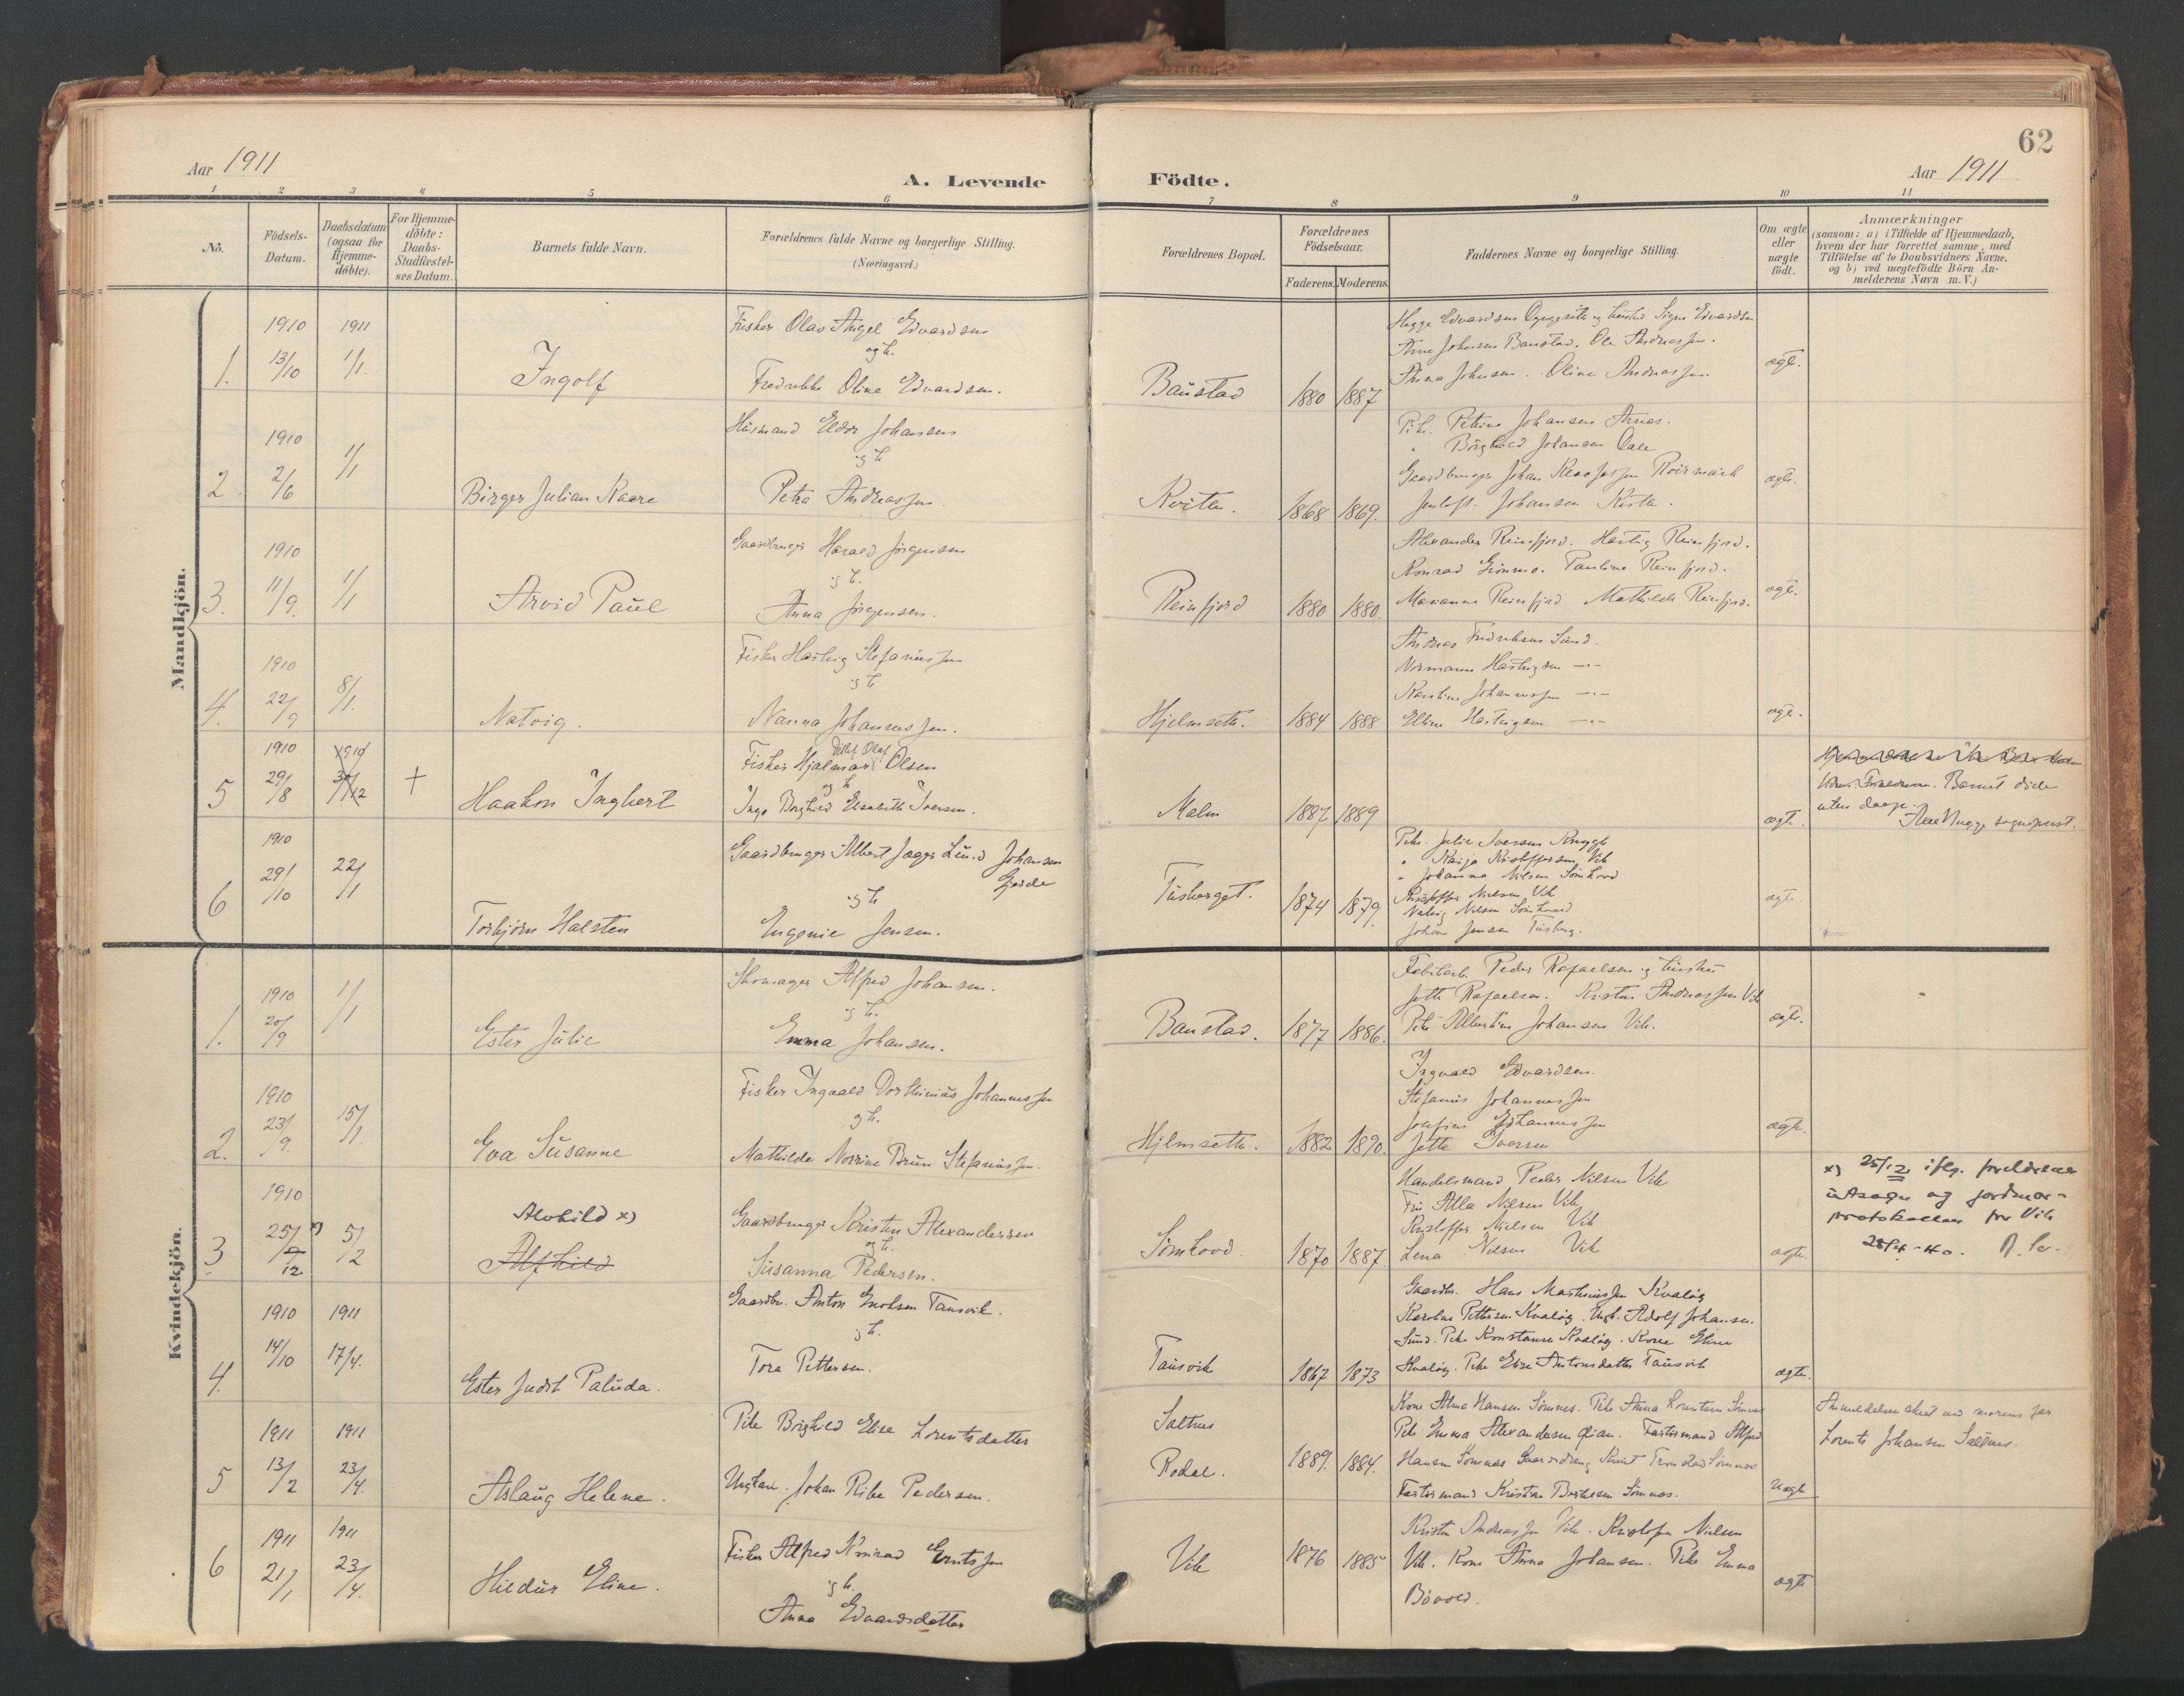 62
Aar 1911
A. Levende
Födte.
Aar 1911
1 2 3 4 5 6 7 8 9 10 11
No.
Födsels-
Datum.
Daabsdatum
(ogsaa for
Hjemme-
döbte).
For Hjemme-
döbte:
Daabs-
Stadfæstel-
ses Datum.
Barnets fulde Navn.
Forældrenes fulde Navne og borgerlige Stilling.
(Næringsvei.)
Forældrenes Bopæl.
Forældrenes
Födselsaar.
Faderens. Moderens.
Faddernes Navne og borgerlige Stilling.
Om ægte
eller
uægte
födt.
Anmærkninger
(saasom: a) i Tilfælde af Hjemmedaab,
hvem der har forrettet samme, med
Tilföielse af to Daabsvidners Navne,
og b) ved uægtefödte Börn An-
melderens Navn m.V.)
Mandkjön.
1910 1911
1. 13/10 1/1.
Ingolf
Fisker Olav Angel Edvardsen
og h.
Fredrikke Oline Edvardsen.
Baustad 1880 1887
Edvardsen og hustru Signe Edvardsen
Johnsen Baustad. Ole Andreassen.
Anna Johnsen. Oline Andreassen
ægte.
1910
2 2/6 1/1
Birger Julian Kaare
Husmand Eldor Johansen
og h
Petra Andreassen
Kvitle. 1868 1869.
Pike. Petrine Johansen Aunes.
" Borghild Johansen Dale
Gaardbruger Johan
Johansen
ægte.
1910
3. 11/9. 1/1
Arvid Paul
Gaardbruger Harald Jörgensen
og h.
Anna Jörgensen.
Reinfjord 1880 1880.
Alexander Reinfjord. Hartvig Reinfjord.
Konrad Grönmo. Pauline Reinfjord.
Marianne Reinfjord Mathilde Reinfjord.
ægte.
1910
4. 22/9 8/1.
Natvig.
Fisker Hartvig Stefanussen
og h
Nanna Johannessen.
Hjelmseth. 1884 1888
Andreas Fredriksen Sund.
Normann Hartvigsen —"—
Johannessen —"—
Eline Hartvigsen —"—
ægte.
1910 1910
5 29/8 31/12 +
Haakon Ingbert
Ditlef Olaf
Fisker Hjalmar Olsen
og h
Inga Borghild Elisabeth Iversen.
Malm 1887 1889
ægte.
Barnet döde
uten daap.
sogneprest.
1910
6 29/10 22/1
Torbjörn Halsten
Gaardbruger Albert Jæger Lund Johansen
Gjerde
og h
Eugenie Jensen.
Fuskerget. 1874 1879
Pike. Julie Iversen
" Kaija Kristoffersen, Vik
" Johanna Nilsen Sömhovd
Kristoffer Nielsen Vik
Natvig Nilsen Sömhovd
Johan Jensen
ægte
Kvindekjön.
1910
1. 20/9 1/1
Ester Julie
Skomager Alfred Johansen.
og h.
Emma Johansen.
Baustad. 1877 1886.
Peder Rafaelsen og hustru
Jette Rafaelsen. Kristen Andreassen Vik
Pike Albertine Johansen Vik.
ægte.
1910
2. 23/9. 15/1.
Eva Susanne
Fisker Ingvald Dorthinius Johannessen
og h.
Mathilde Norine Brun Stefanussen.
Hjelmseth. 1882 1890.
Ingvald Edvardsen.
Stefanus Johannessen
Josefine Johannessen
Jette Iversen
ægte.
1910
3 25/12 x) 5/2
Alvhild x)
Alfhild
Gaardbruger Kristen Alexandersen
og h.
Susanna Pedersen.
Sömhovd. 1870 1887
Handelsmand Peder Nilsen Vik
Fru Alla Nilsen Vik
Kristoffer Nielsen Vik
Lena Nilsen Vik
ægte.
x) 25/12 iflg. foreldrenes
utsagn og jordmor-
protokollen for Vik
28/4-40.
1910 1911
4. 14/10 17/4.
Ester Judit Paluda.
Gaardbr. Anton Enoksen Tausvik.
og h.
Tora Pettersen.
Tausvik 1867 1873
Gaardbr. Hans Mathiassen Kvalöy
Karoline Pettersen Kvalöy. Ungk. Adolf Johansen
Sund. Pike Konstanse Kvalöy. Kone Eline
Kvalöy. Pike Elise Antonsdatter Tausvik
ægte.
1911 1911
5 13/2 23/4.
Aslaug Helene.
Pike Borghild Elise Lorentsdatter
Ungkar. Johan Ribe Pedersen.
Saltnes
Rodal. 1889. 1884.
Kone Alma Hansen Sömnes. Pike Anna Lorentsen Sömnes
Pike Emma Alexandersen Alfred
Hansen Sömnes Gaardsdreng Sömnes
Kristian Sömnes.
Uægte
Anmeldelsen skeet ved morens far
Lorents Johansen Saltnes.
1911 1911
6 21/1 23/4.
Hildur Eline.
Fisker Alfred Konrad Erntsen
og h.
Anna Edvardsdatter
Vik 1876 1885
Kristen Andreassen Vik. Kristofer Nielsen
Vik. Kone Anna Johansen. Pike Emma
ægte